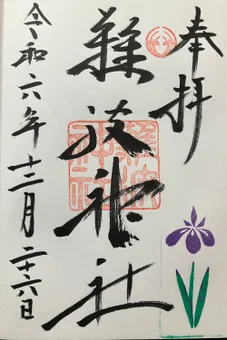 奉拝
難波神社
令和六年十二月二十六日